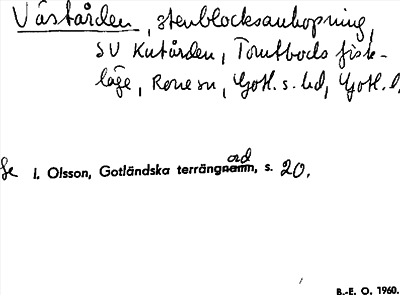 Västården, stenblocksanhopning,
SV Kutården, Tomtbods fisk-
läge, Rone sn, Gotl. s. hd, Gotl. l.
Se I. Olsson, Gotländska terrängnamn, s. 20.
ord
B.-E. O. 1960.